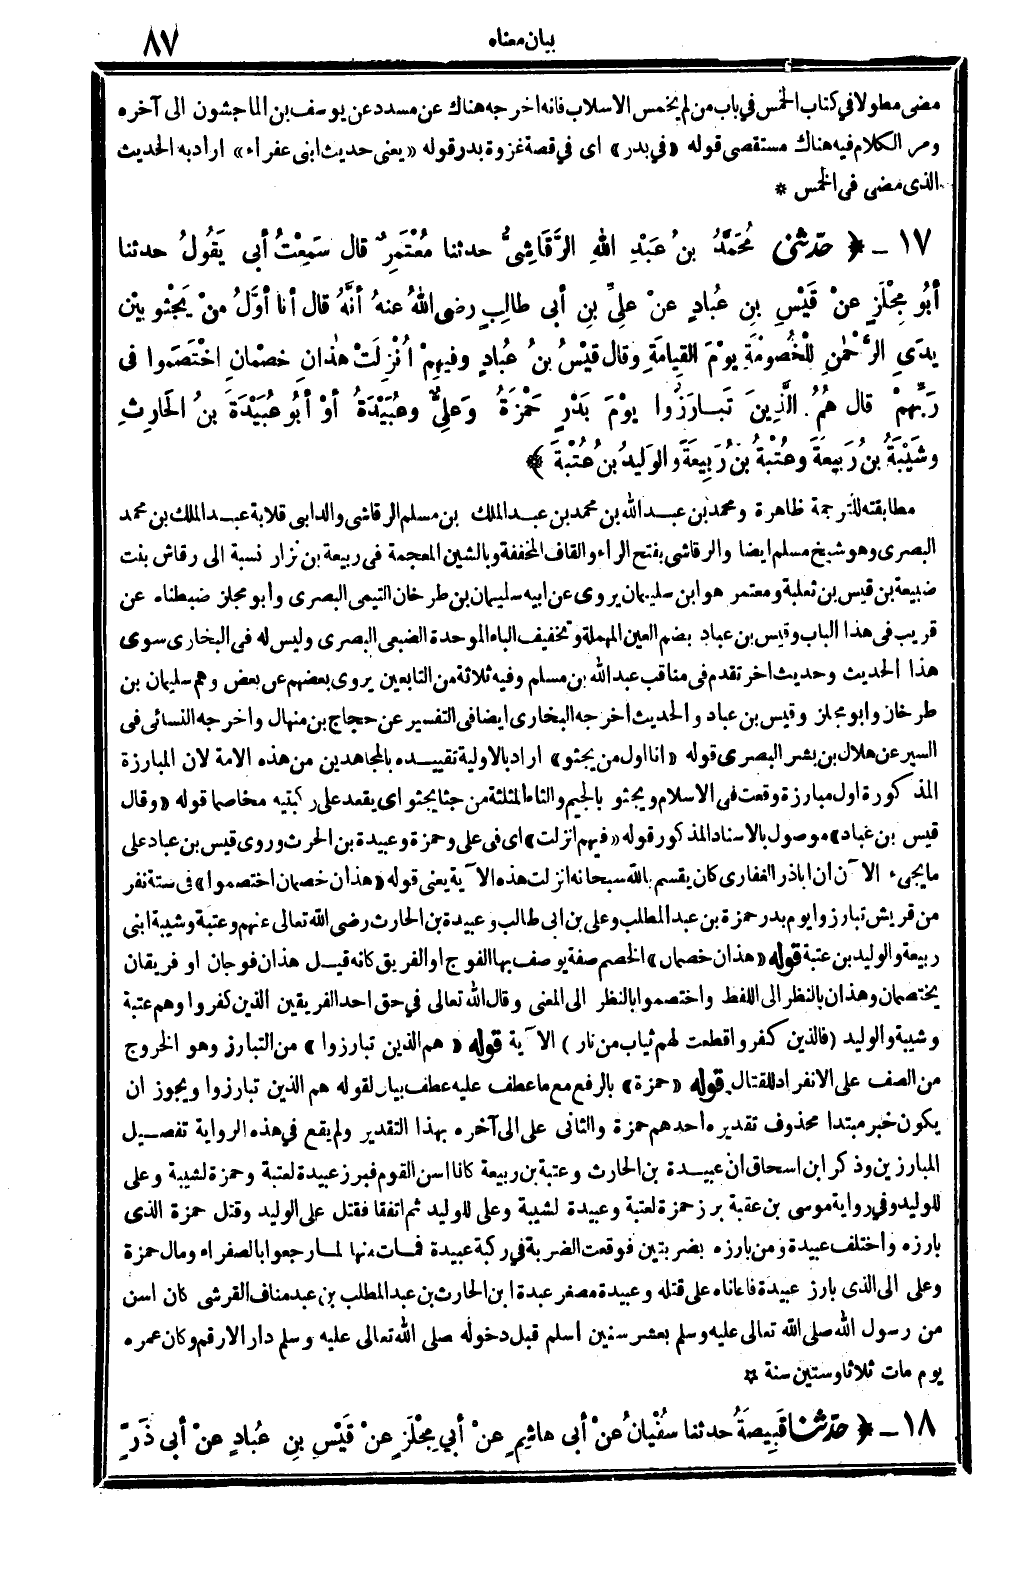 بيان معناه
٨٧
مضى مطولا في كتاب الخمس في باب من لم يخمس الاسلاب فانه اخرجه هناك عن مسدد عن يوسف بن الماجشون الى آخره
ومر الكلام فيه هناك مستقصى قوله «في بدر» اى في قصة غزوة بدر قوله «يعنى حديث ابنى عفراء» اراد به الحديث
الذى مضى فى الخمس *
١٧ - ﴿ حَدَّثَنِى مُحَمَّدُ بنُ عَبْدِ اللهِ الرَّقَاشِىُّ حدثنا مُعْتَمِرٌ قال سَمِعْتُ أبى يَقُولُ حدثنا
أبُو مِجْلَزٍ عنْ قَيْسِ بنِ عُبادٍ عنْ علِيِّ بنِ أبى طالِبٍ رضى اللهُ عنهُ أنَّهُ قال أنا أوَّلُ منْ يَجْثُو بيْن
يدَىِ الرَّحْمٰنِ لِلْخُصُومَةِ يوْمَ القِيامَةِ وقال قيْسُ بنُ عُبادٍ وفيهِمْ أُنْزِلَتْ هٰذانِ خصْمانِ اخْتَصَموا فى
رَبِّهِمْ قال هُمُ الَّذِينَ تَبارَزُوا يوْمَ بَدْرٍ حَمْزَةُ وَعلِيٌّ وعُبَيْدَةُ أوْ أبُو عُبَيْدَةَ بنُ الحَارِثِ
وشَيْبَةُ بنُ رَبيعَةَ وعُتْبَةُ بنُ رَبِيعَةَ والوَلِيدُ بنُ عُتْبَةَ ﴾
مطابقته للترجمة ظاهرة ومحمد بن عبد الله بن محمد بن عبد الملك بن مسلم الرقاشى والدابى قلابة عبد الملك بن محمد
البصرى وهو شيخ مسلم ايضا والرقاشى بفتح الراء والقاف المخففة وبالشين المعجمة فى ربيعة بن نزار نسبة الى رقاش بنت
ضبيعة بن قيس بن ثعلبة ومعتمر هو ابن سليمان يروى عن ابيه سليمان بن طرخان التيمى البصرى وأبو مجلز ضبطناه عن
قريب فى هذا الباب وقيس بن عباد بضم العين المهملة وتخفيف الباء الموحدة الضبعى البصرى وليس له فى البخارى سوى
هذا الحديث وحديث اخر تقدم فى مناقب عبد الله بن مسلم وفيه ثلاثة من التابعين يروى بعضهم عن بعض وهم سليمان بن
طرخان وابو مجلز وقيس بن عباد والحديث اخرجه البخارى ايضا فى التفسير عن حجاج بن منهال واخرجه النسائى فى
السير عن هلال بن بشر البصرى قوله «انا اول من يجثو» اراد بالاولية تقييده بالمجاهدين من هذه الامة لان المبارزة
المذكورة اول مبارزة وقعت فى الاسلام ويجثو بالجيم والثاء المثلثة من جثا يجثو اى يقعد على ركبتيه مخاصما قوله «وقال
قيس بن عباد» موصول بالاسناد المذكور قوله «فيهم انزلت» اى فى على وحمزة وعبيدة بن الحرث وروى قيس بن عباد على
مايجىء الآن ان اباذر الغفارى كان يقسم بالله سبحانه انزلت هذه الآية يعنى قوله «هذان خصمان اختصموا» فى ستة نفر
من قريش تبارزوا يوم بدر حمزة بن عبد المطلب وعلى بن ابى طالب وعبيدة بن الحارث رضى الله تعالى عنهم وعتبة وشيبة ابنى
ربيعة والوليد بن عتبة قوله «هذان خصمان» الخصم صفة يوصف بها الفوج او الفريق كانه قيل هذان فوجان او فريقان
يختصمان وهذان بالنظر الى اللفظ واختصموا بالنظر الى المعنى وقال الله تعالى في حق احد الفريقين الذين كفروا وهم عتبة
وشيبة والوليد (فالذين كفروا قطعت لهم ثياب من نار) الآية قوله «هم الذين تبارزوا» من التبارز وهو الخروج
من الصف على الانفراد للقتال قوله «حمزة» بالرفع مع ماعطف عليه عطف بيان لقوله هم الذين تبارزوا ويجوز ان
يكون خبر مبتدا محذوف تقديره احدهم حمزة والثانى على الى آخره بهذا التقدير ولم يقع في هذه الرواية تفصيل
المبارزين وذكر ابن اسحاق ان عبيدة بن الحارث وعتبة بن ربيعة كانا اسن القوم فبرز عبيدة لعتبة وحمزة لشيبة وعلى
للوليد وفي رواية موسى بن عقبة برز حمزة لعتبة وعبيدة لشيبة وعلى للوليد ثم اتفقا فقتل على الوليد وقتل حمزة الذى
بارزه واختلف عبيدة ومن بارزه بضربتين فوقعت الضربة في ركبة عبيدة فمات منها لما رجعوا بالصفراء ومال حمزة
وعلى الى الذى بارز عبيدة فاعاناه على قتله وعبيدة مصغر عبدة ابن الحارث بن عبد المطلب بن عبد مناف القرشى كان اسن
من رسول الله صلى الله تعالى عليه وسلم بعشر سنين اسلم قبل دخوله صلى الله تعالى عليه وسلم دار الارقم وكان عمره
يوم مات ثلاثا وستين سنة *
١٨ - ﴿ حَدَّثَنَا قَبِيصَةُ حدثنا سُفْيانُ عنْ أبى هاشِمٍ عنْ أبي مِجْلَزٍ عنْ قَيْسِ بنِ عُبادٍ عنْ أبى ذَرٍّ